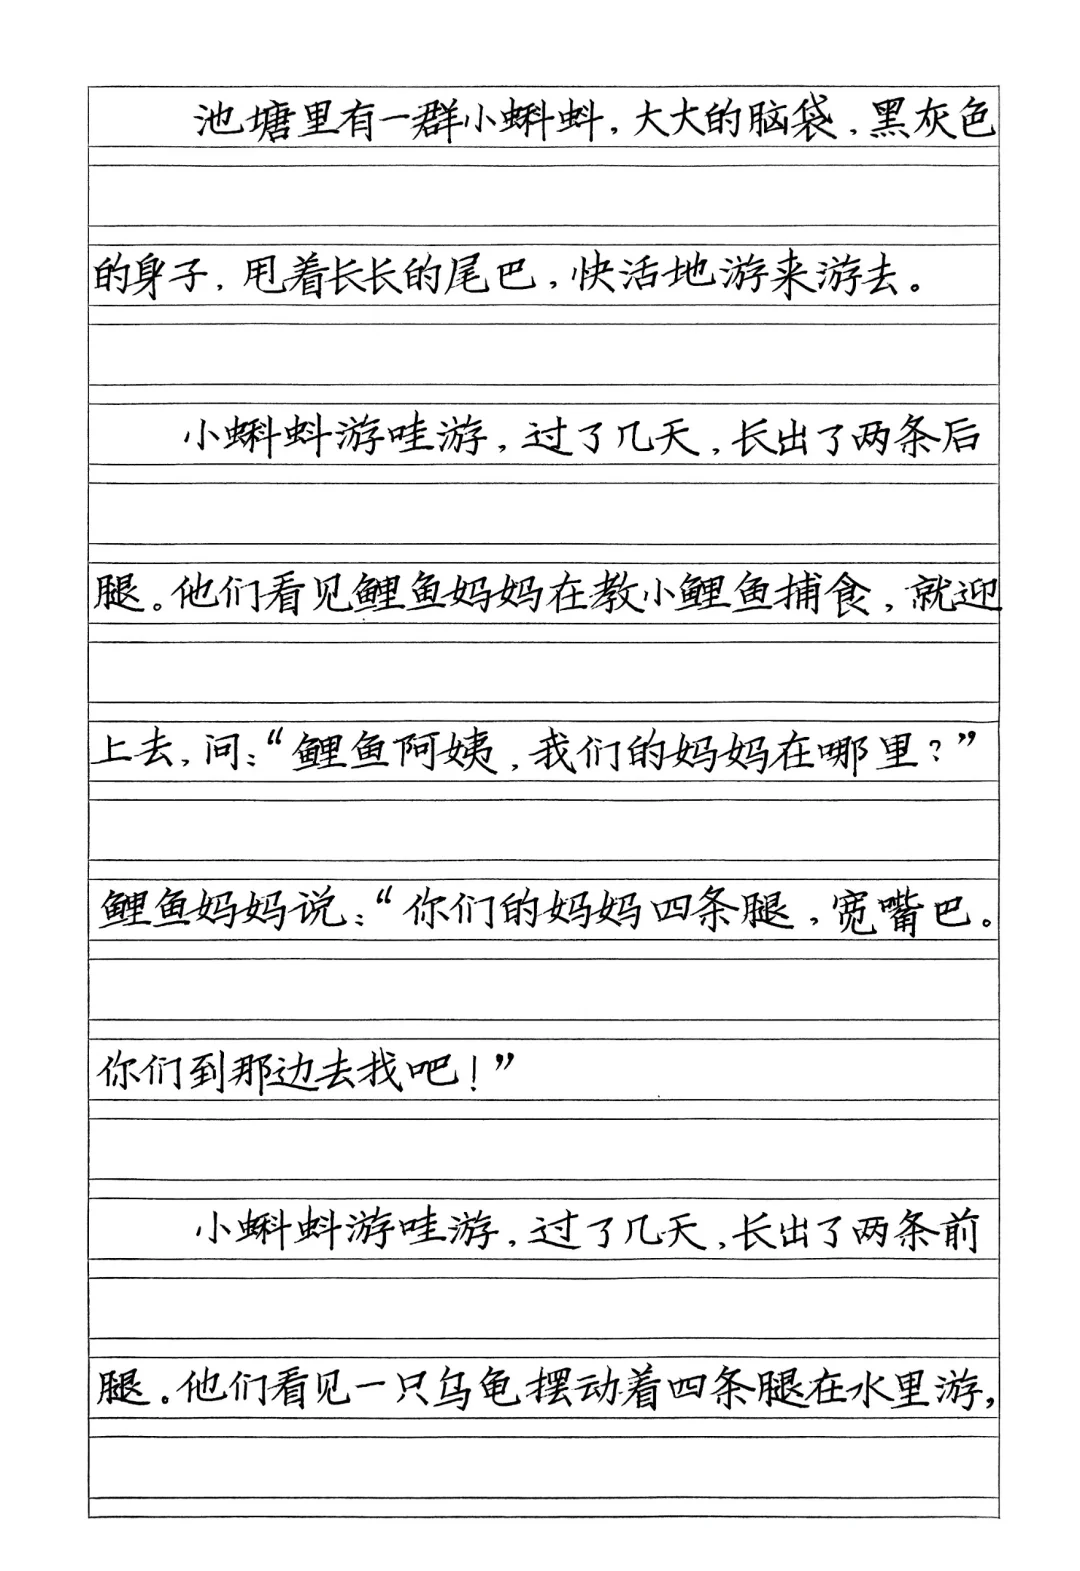 池塘里有一群小蝌蚪，大大的脑袋，黑灰色
的身子，甩着长长的尾巴，快活地游来游去。
小蝌蚪游哇游，过了几天，长出了两条后
腿。他们看见鲤鱼妈妈在教小鲤鱼捕食，就迎
上去，问：“鲤鱼阿姨，我们的妈妈在哪里？”
鲤鱼妈妈说：“你们的妈妈四条腿，宽嘴巴。
你们到那边去找吧！”
小蝌蚪游哇游，过了几天，长出了两条前
腿。他们看见一只乌龟摆动着四条腿在水里游，